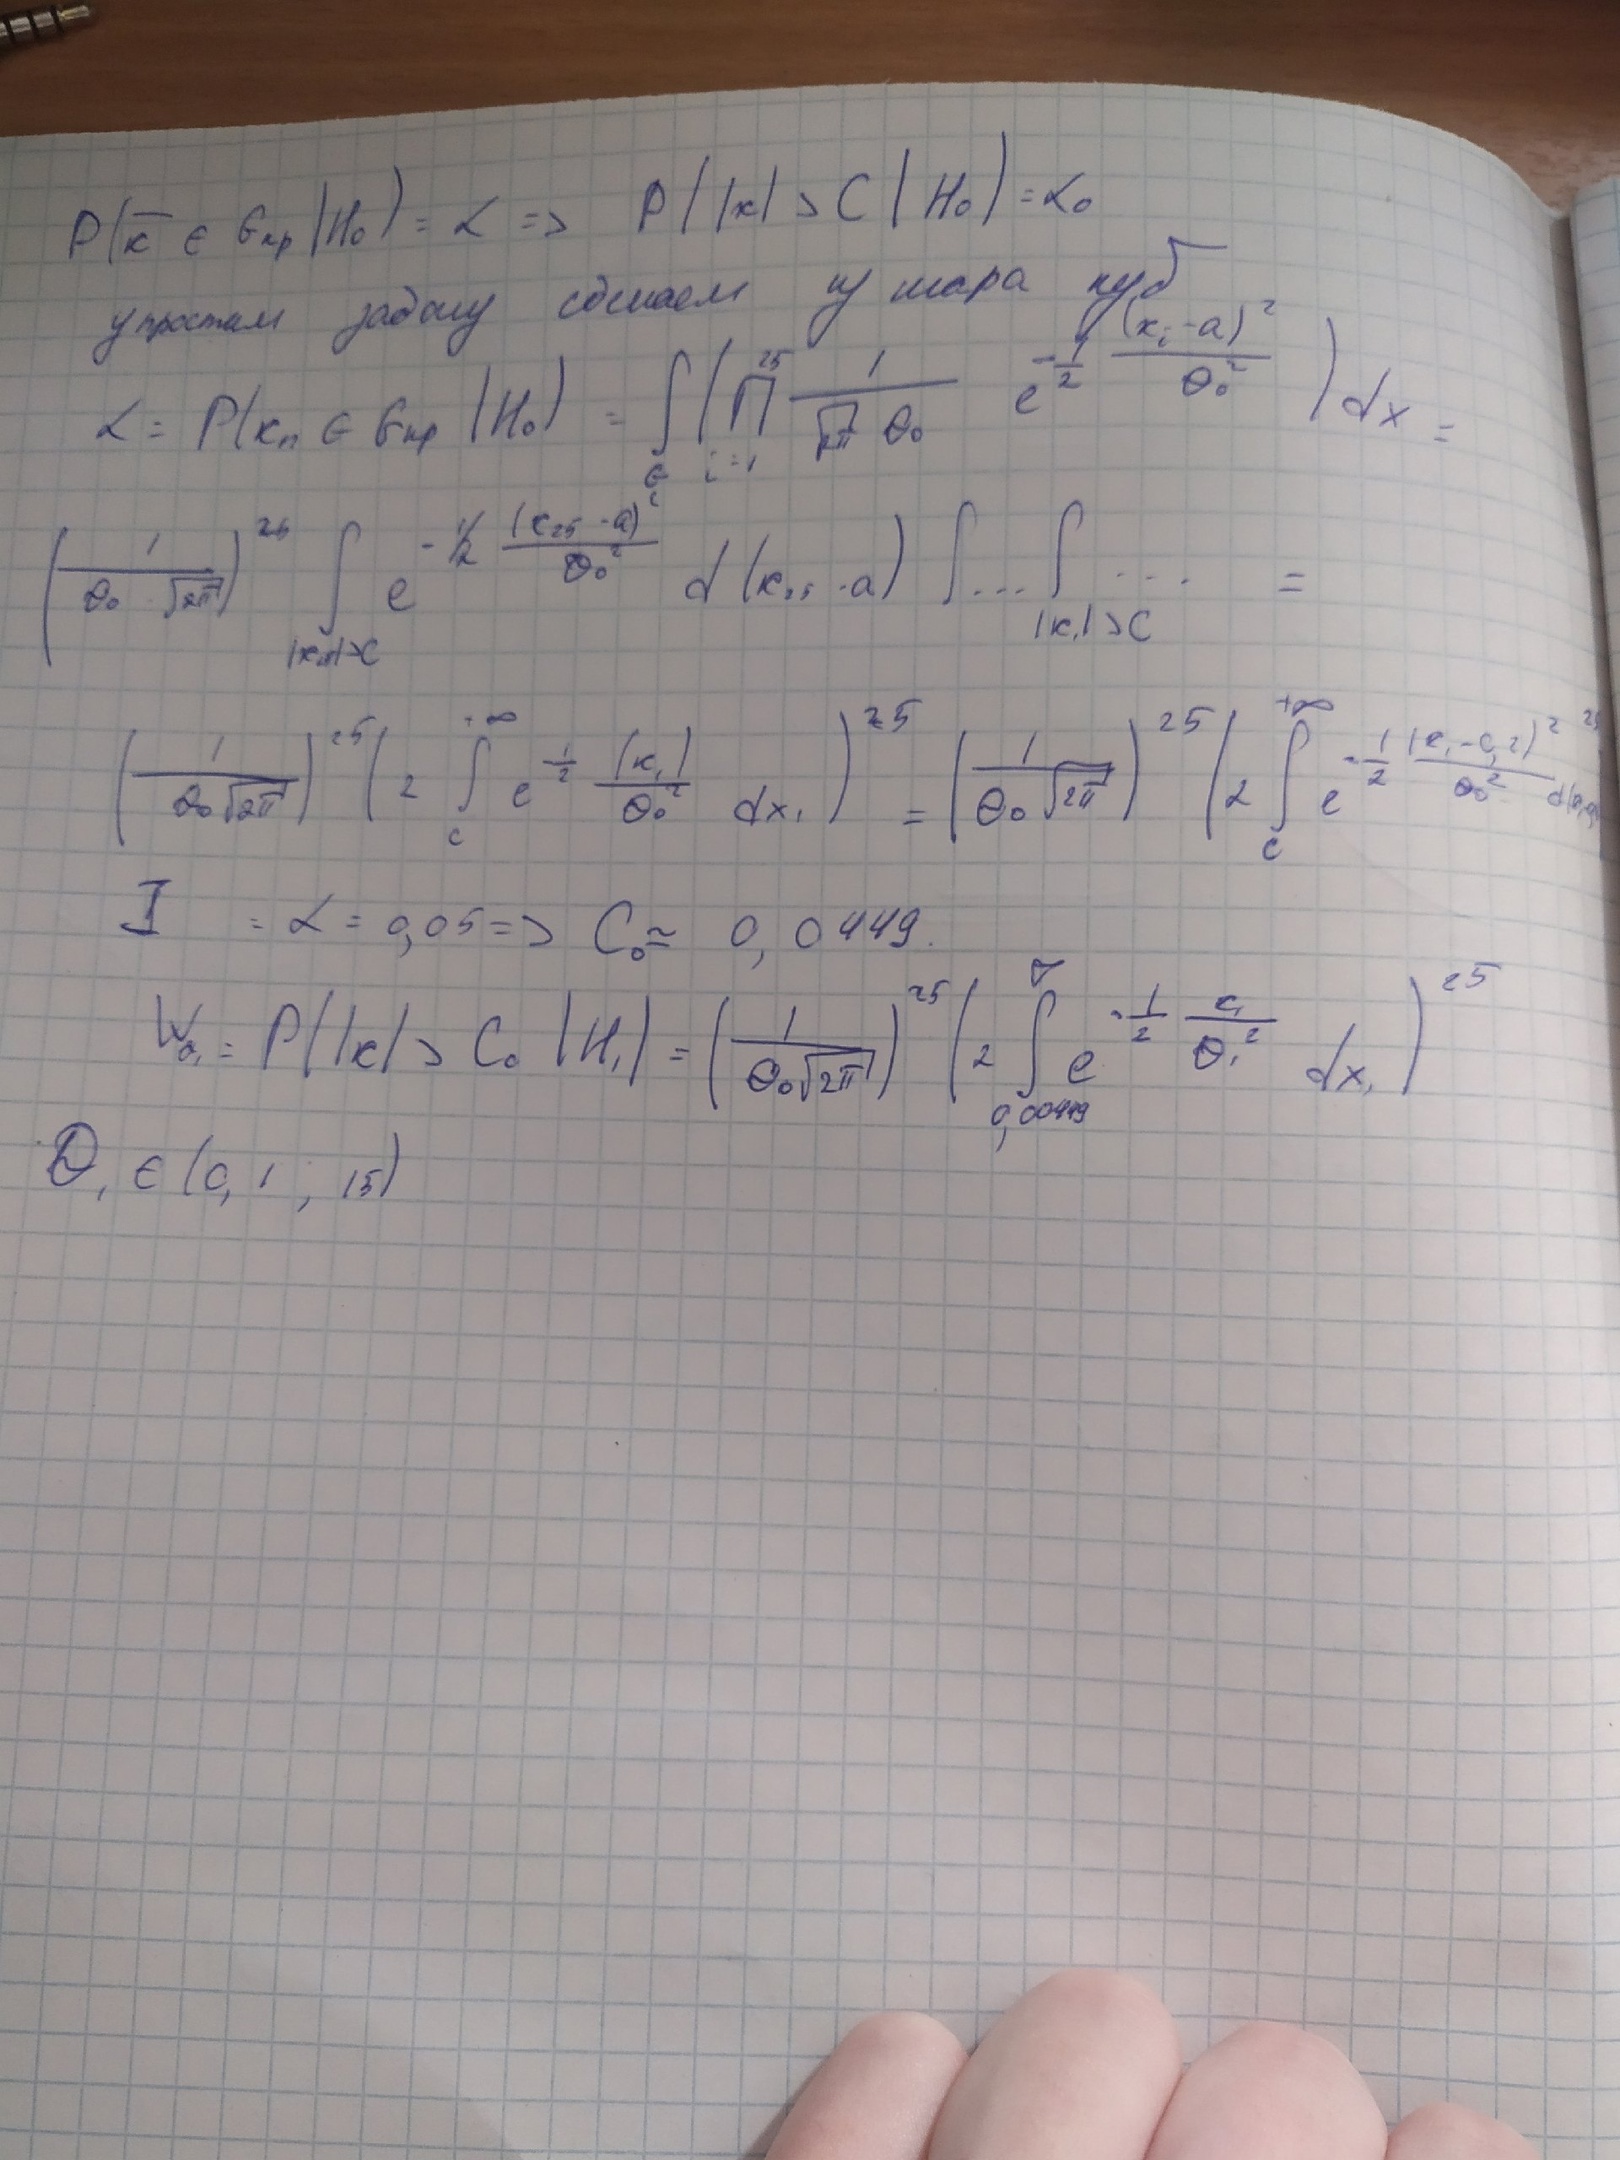 P(x̄ ∈ Gкр | H₀) = α => P(|x| > C | H₀) = α₀
упростим задачу сделаем из шара куб
α = P(xₙ ∈ Gкр | H₀) = ∫_G (∏_{i=1}^{25} 1/(√2π θ₀) e^{-1/2 (xᵢ - a)²/θ₀²}) dx =
(1/(θ₀ · √2π))^{25} ∫_{|x₂₅|>C} e^{-1/2 (x₂₅ - a)²/θ₀²} d(x₂₅ - a) ∫...∫_{|x₁|>C} ... =
(1/(θ₀√2π))^{25} (2 ∫_c^{+∞} e^{-1/2 (x₁)/θ₀²} dx₁)^{25} = (1/(θ₀√2π))^{25} (2 ∫_c^{+∞} e^{-1/2 (x₁ - 0,2)²/θ₀²}
I = α = 0,05 => C₀ ≈ 0,0449.
P(|x| > C₀ | H₁) = (1/(θ₀√2π))^{25} (2 ∫_{0,00449}^{∞} e^{-1/2 x₁/θ₁²} dx₁)^{25}
θ₁ ∈ (0,1 ; 15)